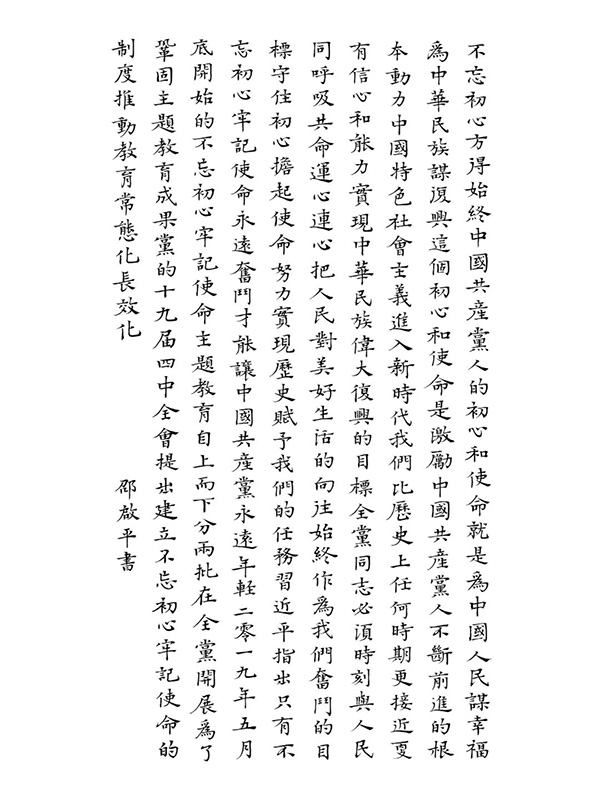 不忘初心方得始終中國共産黨人的初心和使命就是爲中國人民謀幸福
爲中華民族謀復興這個初心和使命是激勵中國共産黨人不斷前進的根
本動力中國特色社會主義進入新時代我們比歷史上任何時期更接近更
有信心和能力實現中華民族偉大復興的目標全黨同志必須時刻與人民
同呼吸共命運心連心把人民對美好生活的向往始終作爲我們奮鬥的目
標守住初心擔起使命努力實現歷史賦予我們的任務習近平指出只有不
忘初心牢記使命永遠奮鬥才能讓中國共産黨永遠年輕二零一九年五月
底開始的不忘初心牢記使命主題教育自上而下分兩批在全黨開展爲了
鞏固主題教育成果黨的十九届四中全會提出建立不忘初心牢記使命的
制度推動教育常態化長效化 邵啟平書